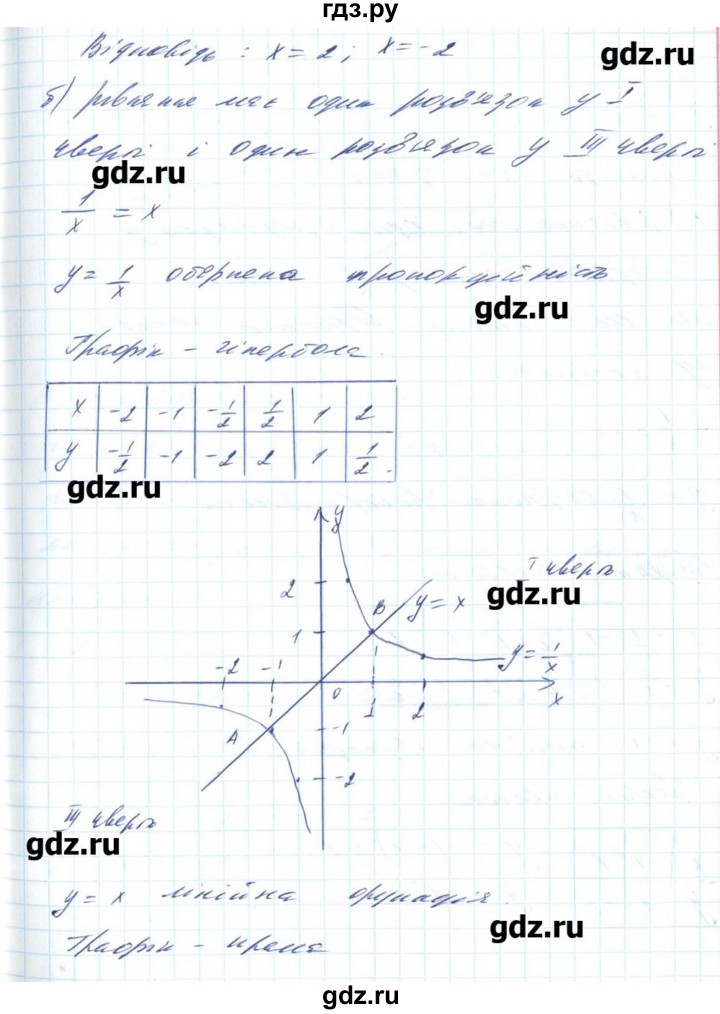 гдз.ру
Відповідь : x = 2 ; x = -2
gdz.ru
б) рівняння має один розв'язок у I
чверті і один розв'язок у III чверті
gdz.ru
1/x = x
y = 1/x обернена пропорційність
gdz.ru
Графік – гіпербола.
x -2 -1 -1/2 1/2 1 2
y -1/2 -1 -2 2 1 1/2 .
gdz.ru
y
I чверть
2
gdz.ru
B y = x
1
-2 -1 y = 1/x
0 1 2 x
A -1
-2
III чверть
gdz.ru
y = x лінійна функція.
gdz.ru
Графік – пряма
gdz.ru